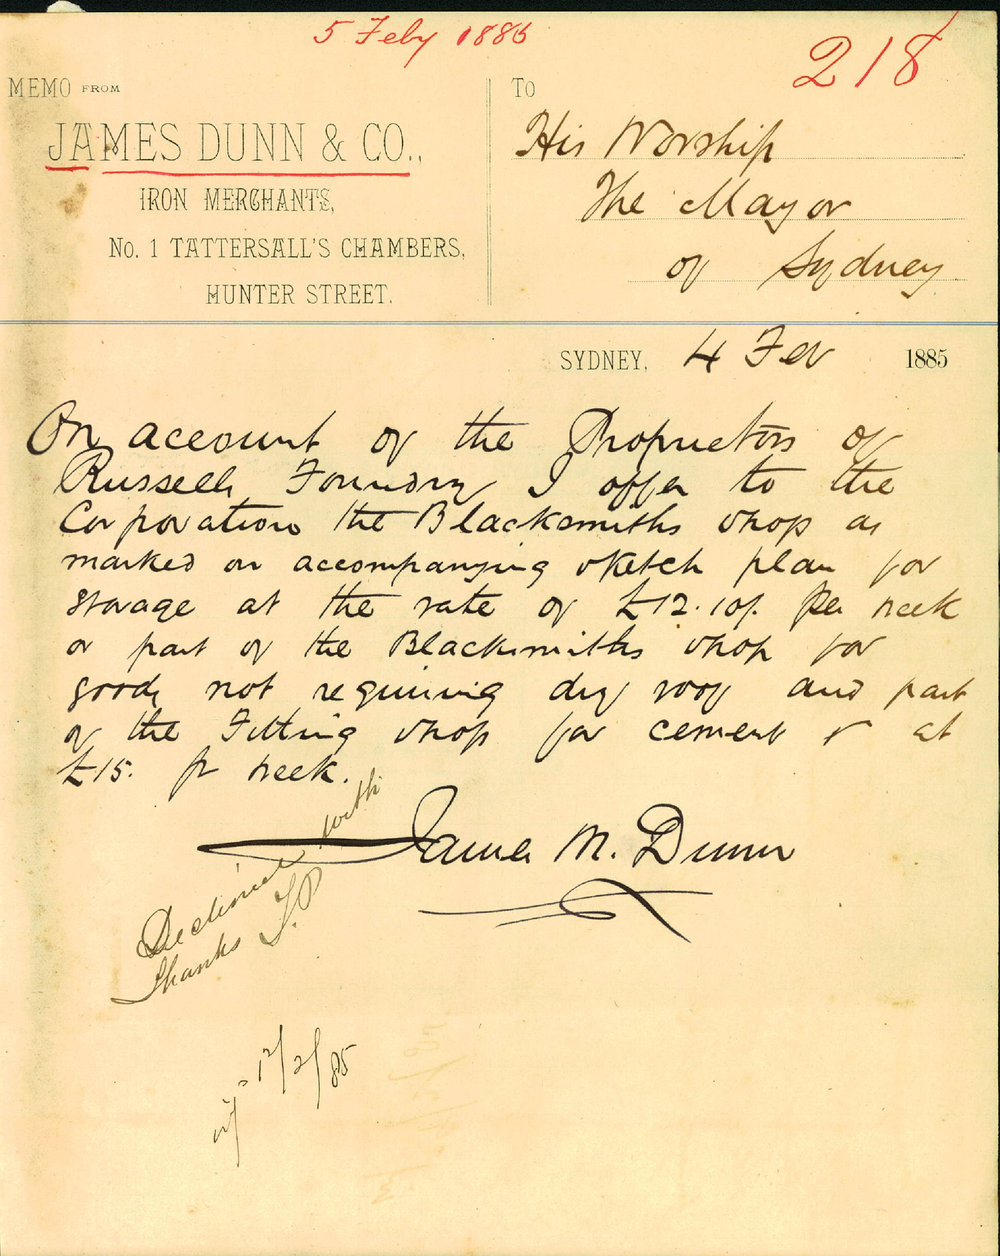 5 Feby 1885
218
MEMO FROM
JAMES DUNN & CO.,
IRON MERCHANTS,
No. 1 TATTERSALL'S CHAMBERS,
HUNTER STREET.
To
His Worship
The Mayor
of Sydney
SYDNEY, 4 Feb 1885
On account of the Proprietors of
Russells Foundry I offer to the
Corporation the Blacksmiths shop as
marked on accompanying sketch plan for
storage at the rate of £12.10/. Per week
or part of the Blacksmiths shop for
goods not requiring dry roof and part
of the Fitting shop for cement & at
£15. pr week.
James M. Dunn
Declined with
thanks
12/2/85